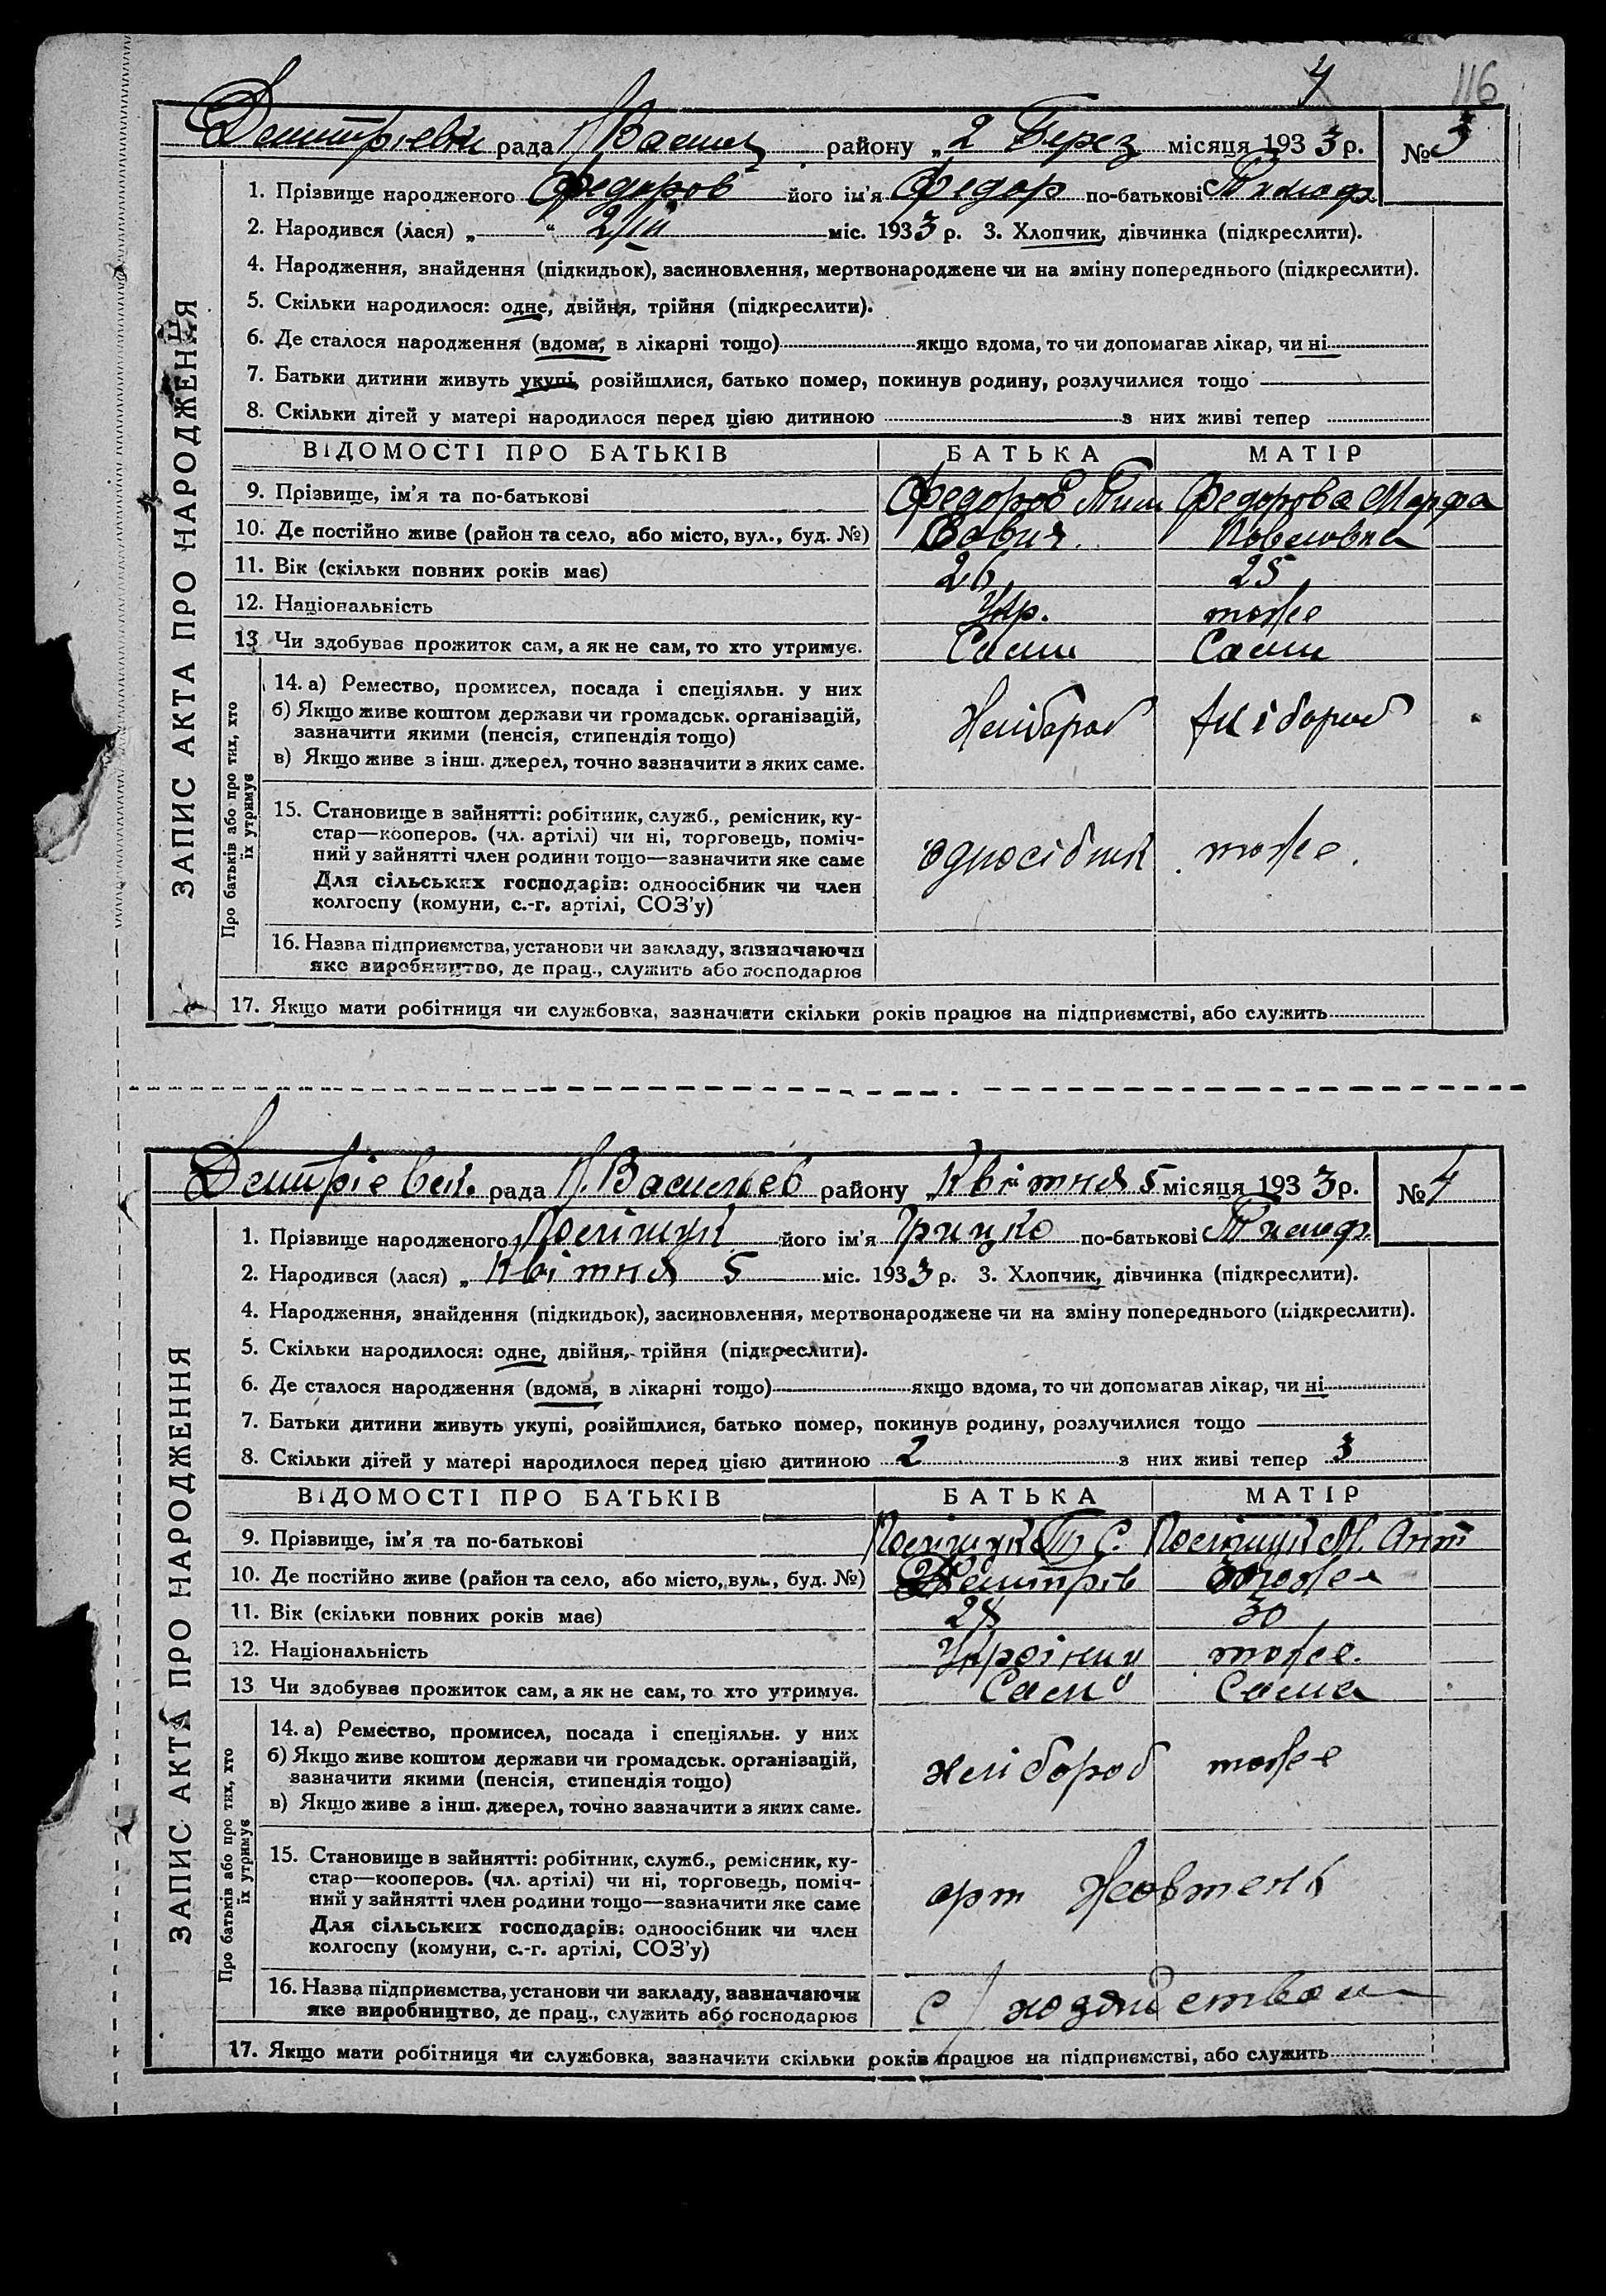 4
116
Дмитрієвка рада Н Васил району „ 2 Берез місяця 1933 р. № 3
ЗАПИС АКТА ПРО НАРОДЖЕННЯ
1. Прізвище народженого Федоров його ім'я Федор по-батькові Тимоф.
2. Народився (лася) „ “ 2/III міс. 1933 р. 3. Хлопчик, дівчинка (підкреслити).
4. Народження, знайдення (підкидьок), засиновлення, мертвонароджене чи на зміну попереднього (підкреслити).
5. Скільки народилося: одне, двійня, трійня (підкреслити).
6. Де сталося народження (вдома, в лікарні тощо) якщо вдома, то чи допомагав лікар, чи ні
7. Батьки дитини живуть укупі, розійшлися, батько помер, покинув родину, розлучилися тощо
8. Скільки дітей у матері народилося перед цією дитиною з них живі тепер
ВІДОМОСТІ ПРО БАТЬКІВ БАТЬКА МАТІР
9. Прізвище, ім'я та по-батькові Федоров Тим Федорова Марфа
10. Де постійно живе (район та село, або місто, вул., буд. №) Павловна
11. Вік (скільки повних років має) 26 25
12. Національність Укр. тоже
13 Чи здобуває прожиток сам, а як не сам, то хто утримує. Сами Сами
Про батьків або про тих, хто
їх утримує
14. а) Ремество, промисел, посада і спеціяльн. у них
б) Якщо живе коштом держави чи громадськ. організацій,
зазначити якими (пенсія, стипендія тощо) Хлібороб хлібороб
в) Якщо живе з інш. джерел, точно зазначити з яких саме.
15. Становище в зайнятті: робітник, служб., ремісник, ку-
стар—кооперов. (чл. артілі) чи ні, торговець, поміч-
ний у зайнятті член родини тощо—зазначити яке саме односібник тоже.
Для сільських господарів: одноосібник чи член
колгоспу (комуни, с.-г. артілі, СОЗ'у)
16. Назва підприємства, установи чи закладу, зазначаючи
яке виробництво, де прац., служить або господарює
17. Якщо мати робітниця чи службовка, зазначити скільки років працює на підприємстві, або служить
Дмитрієвськ. рада Н. Васильев району „ Квітня 5 місяця 1933 р. № 4
ЗАПИС АКТА ПРО НАРОДЖЕННЯ
1. Прізвище народженого Поліщук його ім'я Грицко по-батькові Тимоф.
2. Народився (лася) „ Квітня 5 міс. 1933 р. 3. Хлопчик, дівчинка (підкреслити).
4. Народження, знайдення (підкидьок), засиновлення, мертвонароджене чи на зміну попереднього (підкреслити).
5. Скільки народилося: одне, двійня, трійня (підкреслити).
6. Де сталося народження (вдома, в лікарні тощо) якщо вдома, то чи допомагав лікар, чи ні
7. Батьки дитини живуть укупі, розійшлися, батько помер, покинув родину, розлучилися тощо
8. Скільки дітей у матері народилося перед цією дитиною 2 з них живі тепер 3
ВІДОМОСТІ ПРО БАТЬКІВ БАТЬКА МАТІР
9. Прізвище, ім'я та по-батькові Поліщук Т. С. Поліщук М. Ант
10. Де постійно живе (район та село, або місто, вул., буд. №) Дмитрів тоже
11. Вік (скільки повних років має) 28 30
12. Національність Україниц тоже.
13 Чи здобуває прожиток сам, а як не сам, то хто утримує. Сам Сама
Про батьків або про тих, хто
їх утримує
14. а) Ремество, промисел, посада і спеціяльн. у них
б) Якщо живе коштом держави чи громадськ. організацій,
зазначити якими (пенсія, стипендія тощо) хлібороб тоже
в) Якщо живе з інш. джерел, точно зазначити з яких саме.
15. Становище в зайнятті: робітник, служб., ремісник, ку-
стар—кооперов. (чл. артілі) чи ні, торговець, поміч-
ний у зайнятті член родини тощо—зазначити яке саме арт Жовтень
Для сільських господарів: одноосібник чи член
колгоспу (комуни, с.-г. артілі, СОЗ'у)
16. Назва підприємства, установи чи закладу, зазначаючи
яке виробництво, де прац., служить або господарює С/хозяйством
17. Якщо мати робітниця чи службовка, зазначити скільки років працює на підприємстві, або служить